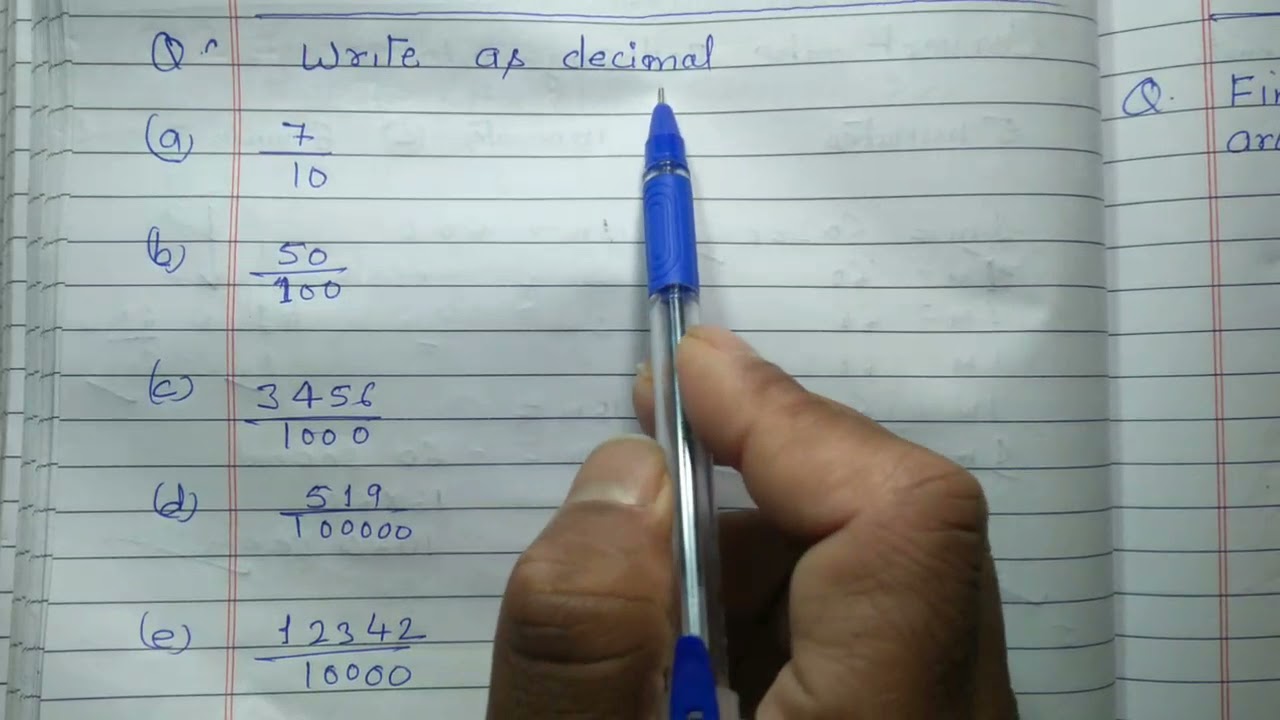 Q. Write as decimal
(a) 7/10
(b) 50/100
(c) 3456/1000
(d) 519/100000
(e) 12342/10000
Q.